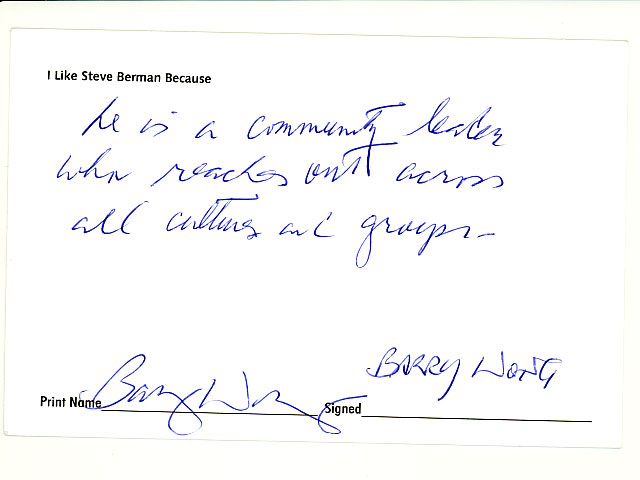 I Like Steve Berman Because
he is a community leader
who reaches out across
all cultures and groups-
BARRY WONG
Print Name Barry Wong Signed